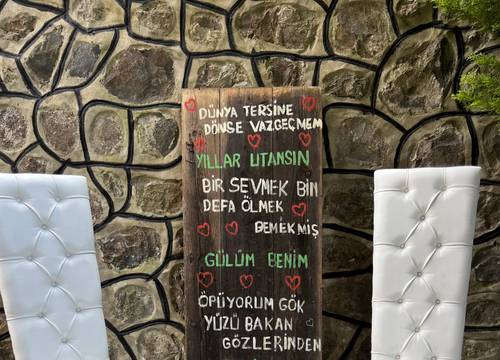 DÜNYA TERSİNE
DÖNSE VAZGEÇMEM
YILLAR UTANSIN
BİR SEVMEK BİN
DEFA ÖLMEK
DEMEKMİŞ
GÜLÜM BENİM
ÖPÜYORUM GÖK
YÜZÜ BAKAN
GÖZLERİNDEN